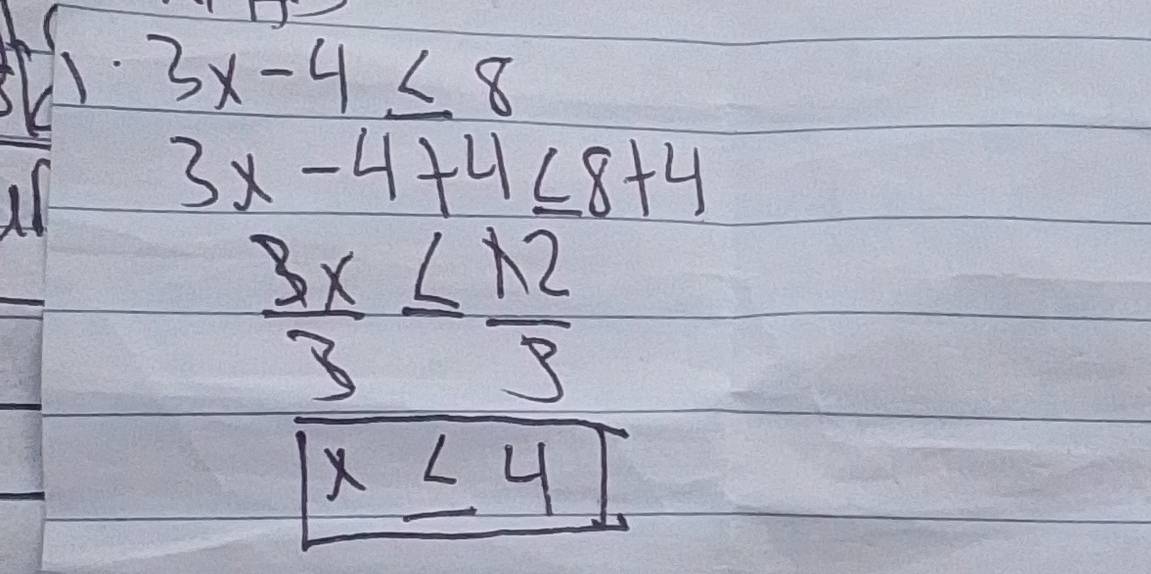 1. 3x - 4 ≤ 8
3x - 4 + 4 ≤ 8 + 4
3x ≤ 12
3 3
x ≤ 4